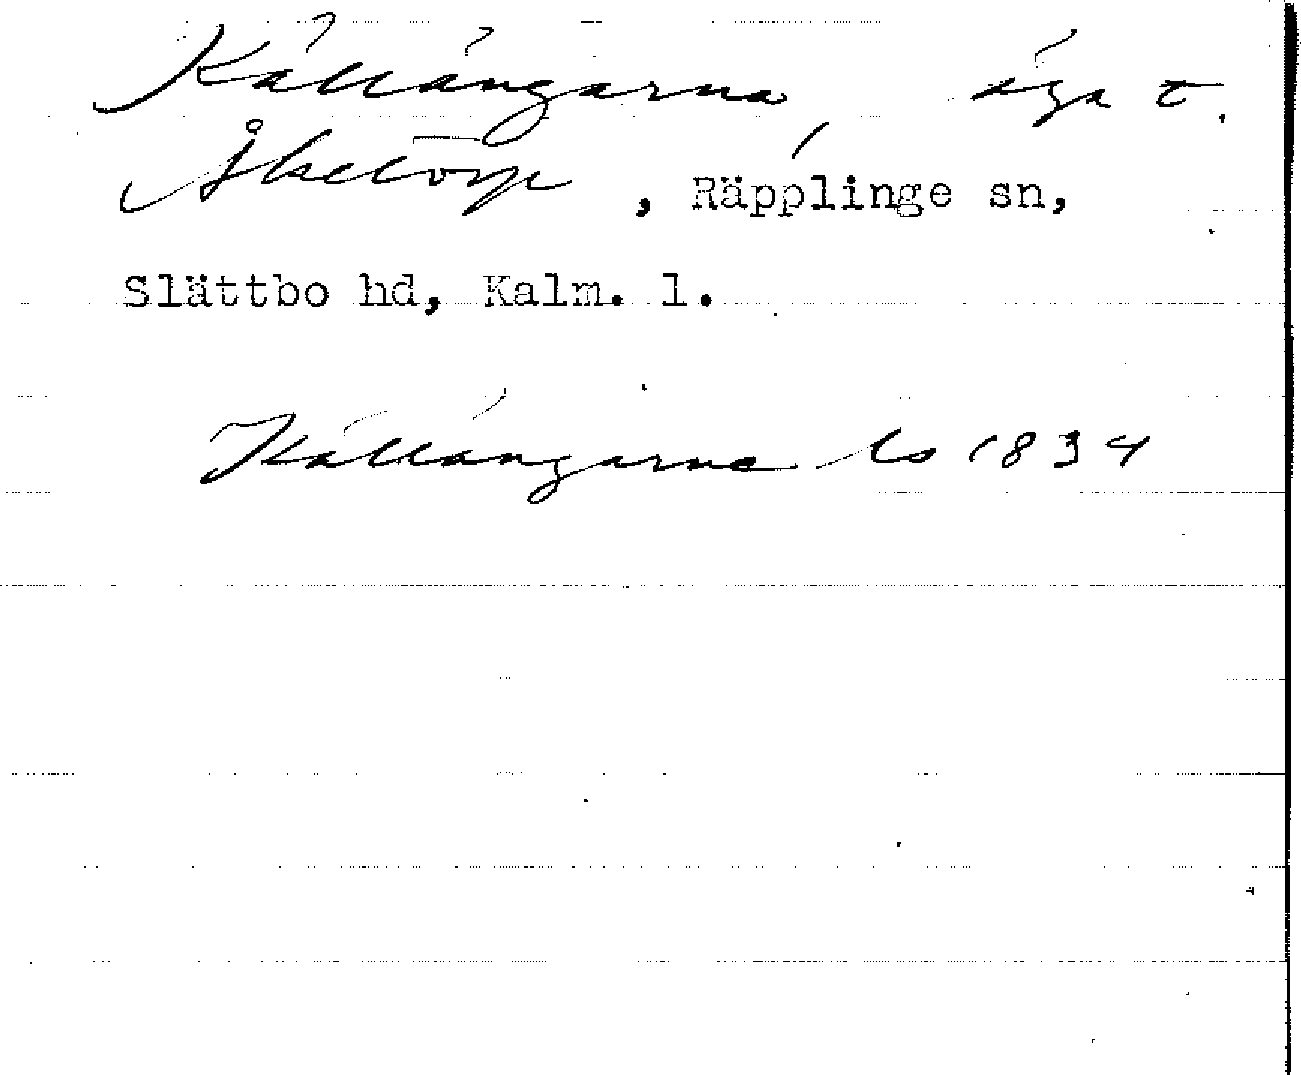 Källängarna, äga t.
Åketorp, Räpplinge sn,
Slättbo hd, Kalm. l.
Källängarne ls 1834